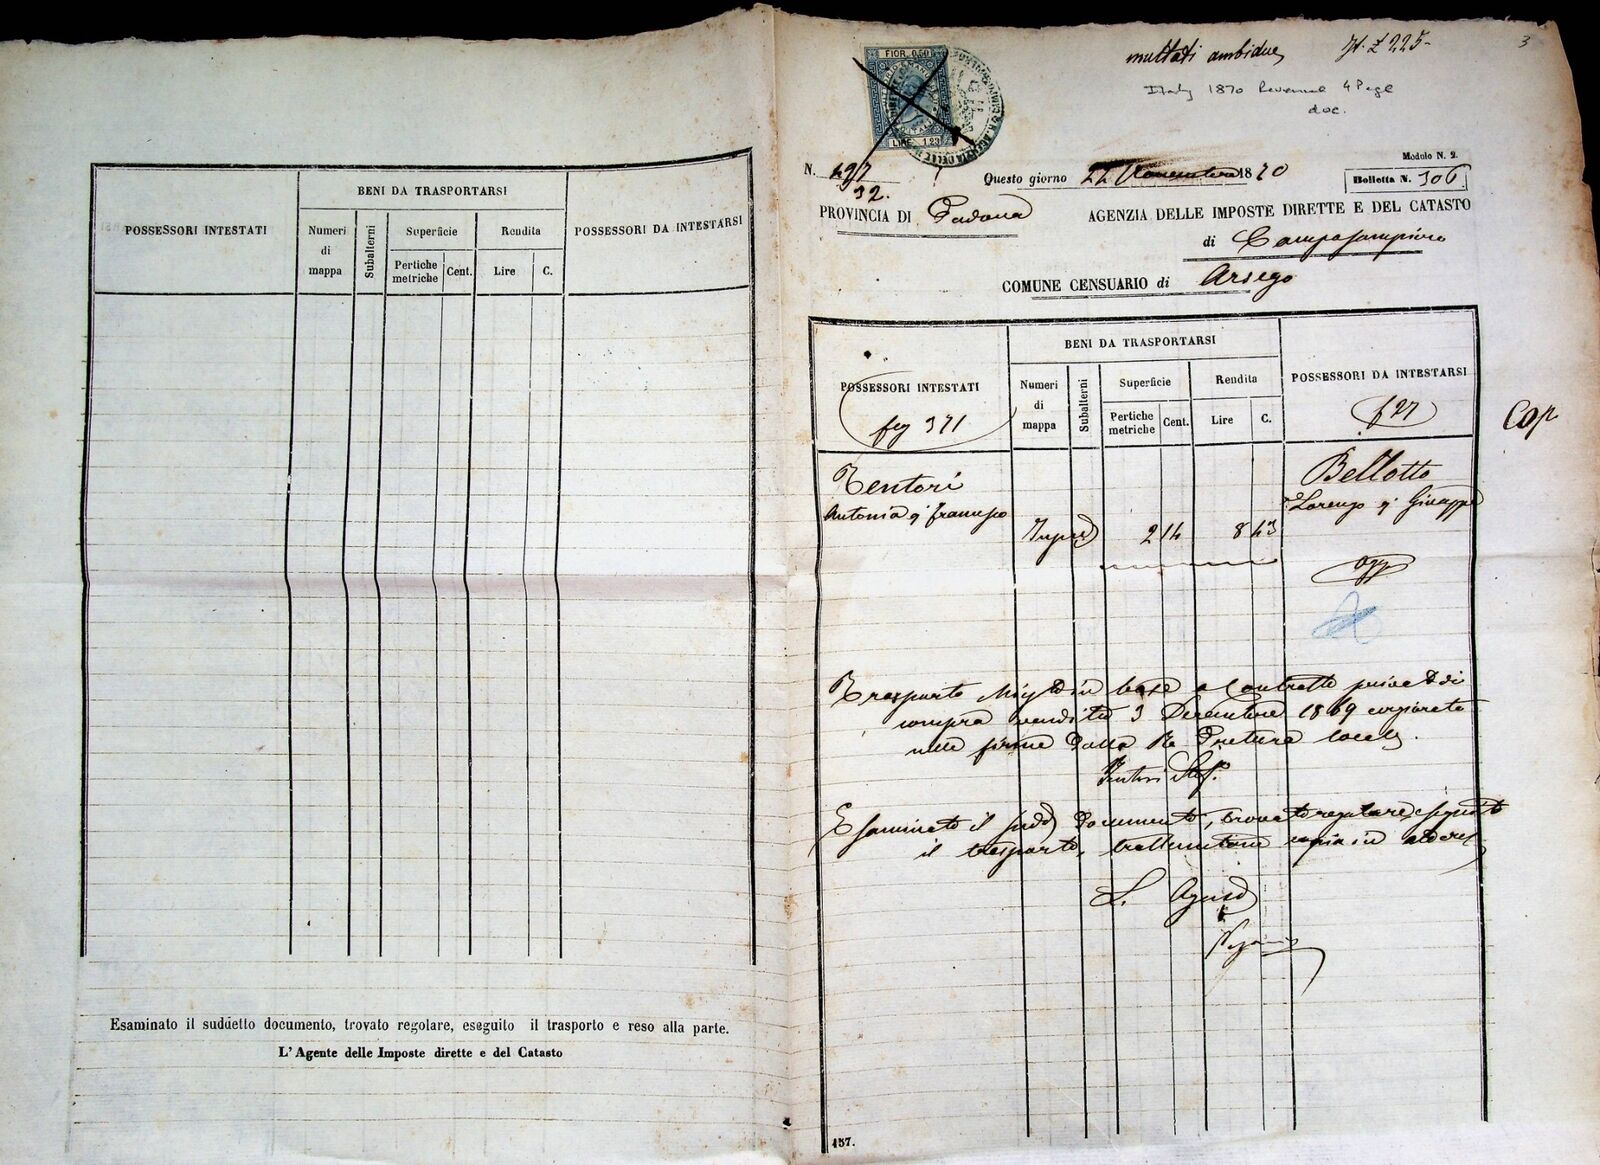 POSSESSORI INTESTATI
BENI DA TRASPORTARSI
Numeri di mappa
Subalterni
Superficie
Pertiche metriche
Cent.
Rendita
Lire
C.
POSSESSORI DA INTESTARSI
Esaminato il suddetto documento, trovato regolare, eseguito il trasporto e reso alla parte.
L'Agente delle Imposte dirette e del Catasto
3
multati ambidue
Italy 1870 Revenue 4 Page
doc.
FIOR. 0.50
LIRE 1.23
Modulo N. 2.
N.
32.
Questo giorno 22 Novembre 1870
Bolletta N. 306
PROVINCIA DI Padova
AGENZIA DELLE IMPOSTE DIRETTE E DEL CATASTO
di Camposampiero
COMUNE CENSUARIO di Arsego
POSSESSORI INTESTATI
fg 371
BENI DA TRASPORTARSI
Numeri di mappa
Subalterni
Superficie
Pertiche metriche
Cent.
Rendita
Lire
C.
POSSESSORI DA INTESTARSI
f 27
Cop
Tentori
Antonia q Francesco
2 14
8 43
Bellotto
Lorenzo q Giuseppe
Trasporto in base a Contratto privato di
compra vendita 3 Decembre 1869
nelle firme dalla Re Pretura locale.
Tentori
Esaminato il sudd documento, trovato regolare, eseguito
il trasporto,
L' Agente
157.